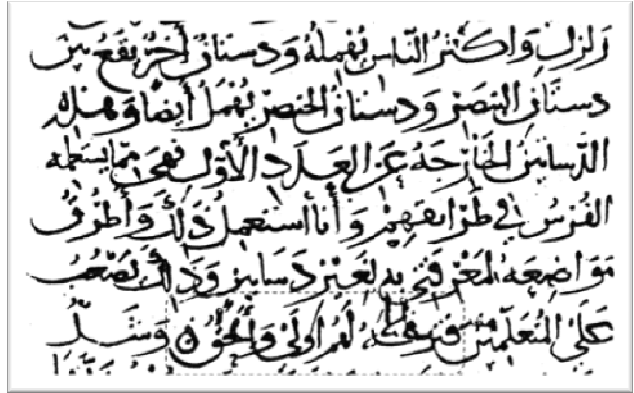 زلزل واكثر الناس يهمله ودستان آخر يقع بين
دستان البنصر ودستان الخنصر يهمل ايضا وهذه
الدساتين الخارجة عن العدد الأول فهي مما يستعمله
الفرس في طرائقهم وأنا استعمل ذلك وأطرق
مواضعه لمعرفتي به لغير دساتين وذلك يصعب
على المتعلمين لهم أولى وألحق